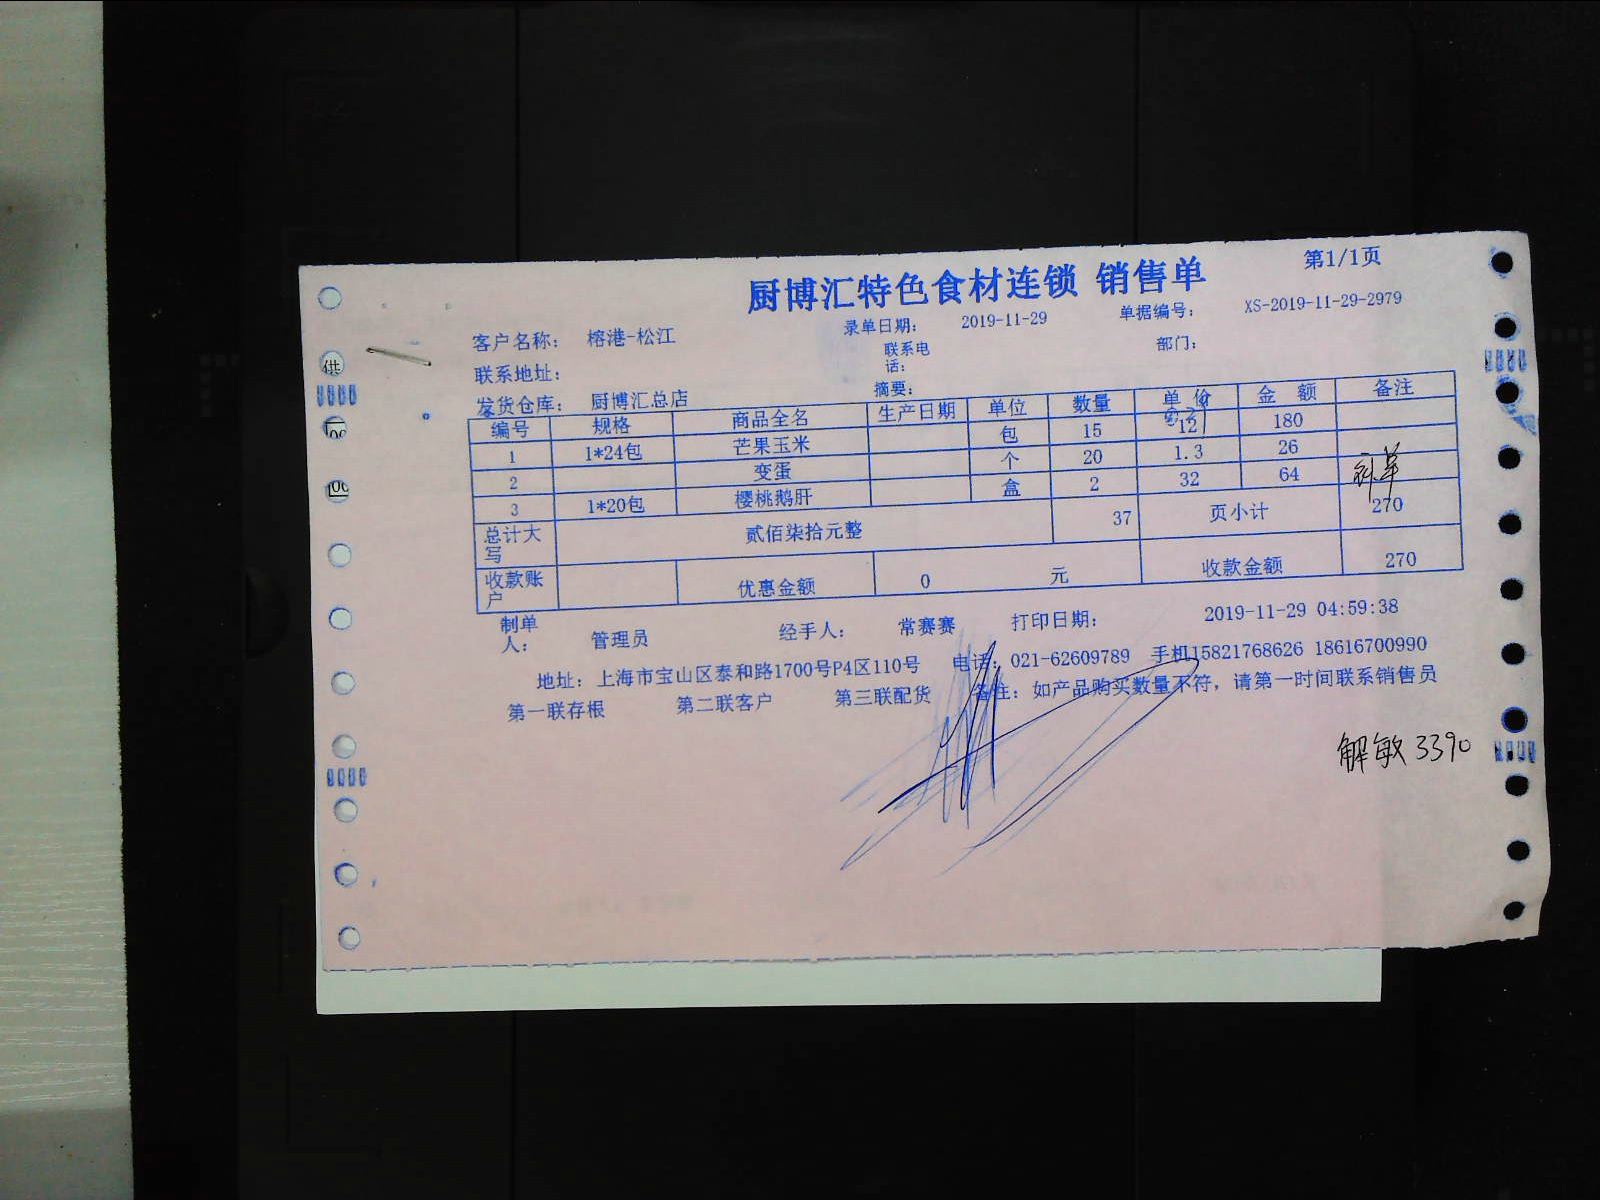 第1/1页
厨博汇特色食材连锁 销售单
客户名称: 榕港-松江 录单日期: 2019-11-29 单据编号: XS-2019-11-29-2979
联系地址: 联系电话: 部门:
发货仓库: 厨博汇总店 摘要:
编号 规格 商品全名 生产日期 单位 数量 单价 金额 备注
1 1*24包 芒果玉米 包 15 12 180
2 变蛋 个 20 1.3 26
3 1*20包 樱桃鹅肝 盒 2 32 64
总计大写 贰佰柒拾元整 37 页小计 270
收款账户 优惠金额 0 元 收款金额 270
制单人: 管理员 经手人: 常赛赛 打印日期: 2019-11-29 04:59:38
地址: 上海市宝山区泰和路1700号P4区110号 电话: 021-62609789 手机15821768626 18616700990
第一联存根 第二联客户 第三联配货 备注: 如产品购买数量不符, 请第一时间联系销售员
解敏 3390
供